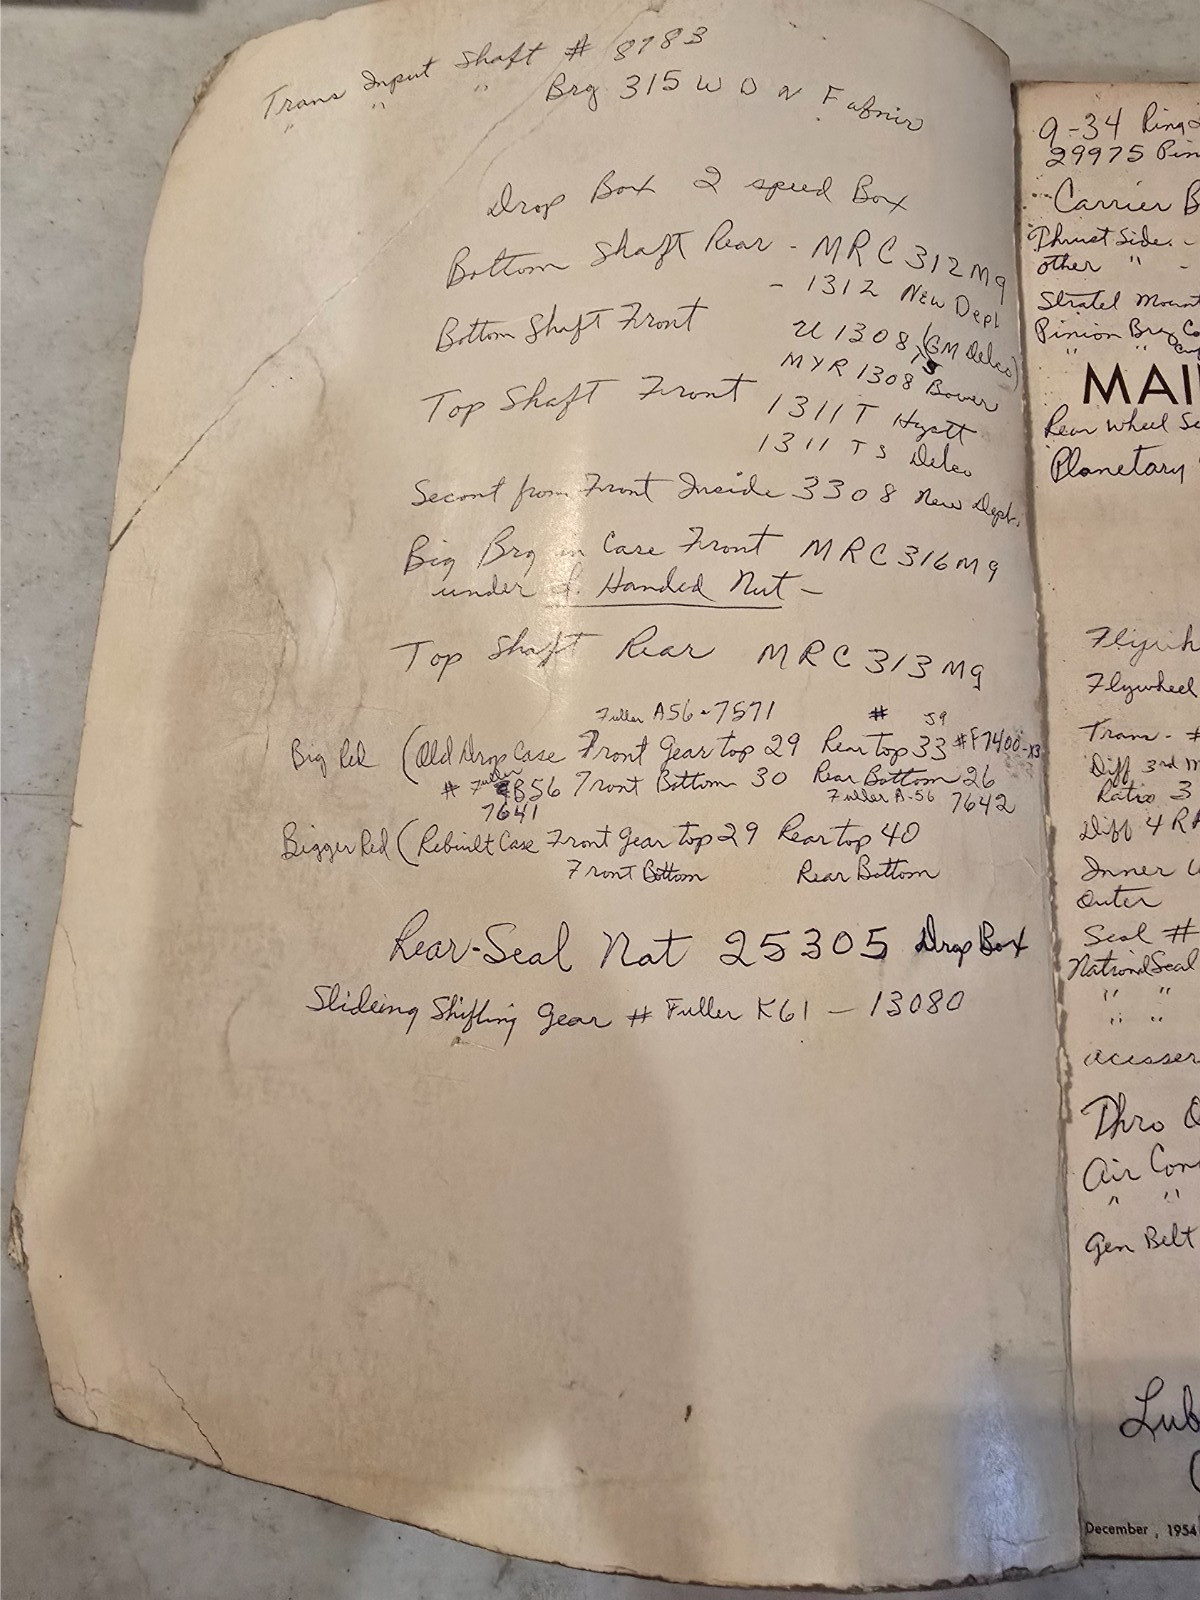 Trans Input Shaft # 8783
" " " Brg 315 W D N Fafnir
Drop Box 2 speed Box
Bottom Shaft Rear - MRC 312 Mg
- 1312 New Dept
Bottom Shaft Front U 1308 (GM Delco)
MYR 1308 Bower
Top Shaft Front 1311 T Hyatt
1311 T S Delco
Secont from Front Inside 3308 New Dept.
Big Brg in Case Front MRC 316 Mg
under L. Handed Nut -
Top Shaft Rear MRC 313 Mg
Fuller A56-7571 # 59
Big Red (Old Drop Case Front Gear top 29 Rear top 33 #F7400-X3
# Fuller B56 Front Bottom 30 Rear Bottom 26
7641 Fuller A-56 7642
Bigger Red (Rebuilt Case Front Gear top 29 Rear top 40
Front Bottom Rear Bottom
Rear-Seal Nat 25305 Drop Box
Slideing Shifting Gear # Fuller K61 - 13080
9-34 Ring
29975 Pin
Carrier B
Thrust Side. -
other " -
Mount
Pinion Brg Co
" " Cup
MAI
Rear Wheel Se
Planetary
Flywh
Flywheel
Trans - #
Diff 3rd M
Ratio 3
Diff 4 R
Inner
Outer
Seal #
National Seal
" "
" "
acesser
Thro O
Air Con
" "
Gen Belt
Lub
December, 1954